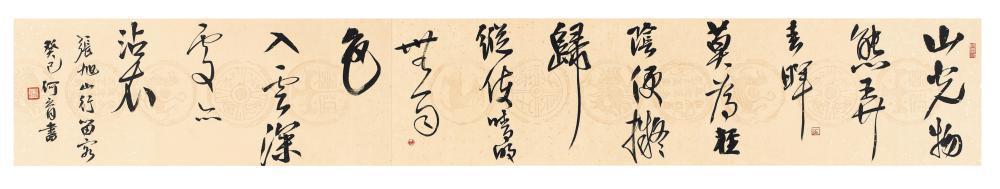 山光物
態弄
春暉
莫為輕
陰便擬
歸
縱使晴明
無雨
色
入雲深
處亦
沾衣
張旭山行留客
癸巳河音書